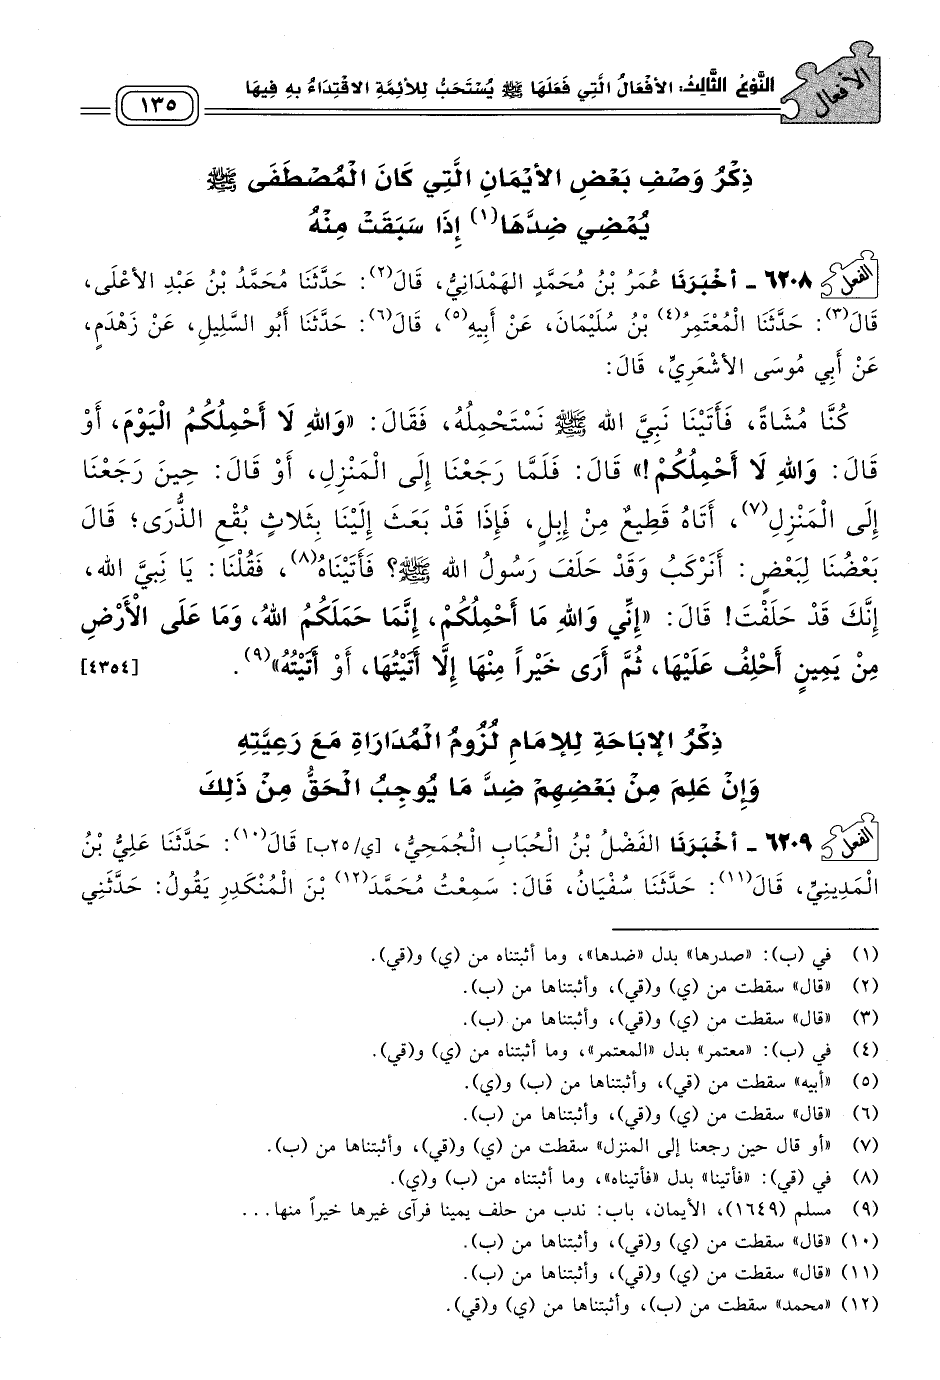 الأفعال
النَّوْعُ الثَّالِثُ: الأَفْعَالُ الَّتِي فَعَلَهَا ﷺ يُسْتَحَبُّ لِلأَئِمَّةِ الاقْتِدَاءُ بِهِ فِيهَا
١٣٥
ذِكْرُ وَصْفِ بَعْضِ الأَيْمَانِ الَّتِي كَانَ الْمُصْطَفَى ﷺ
يُمْضِي ضِدَّهَا(١) إِذَا سَبَقَتْ مِنْهُ
الفعل ٦٢٠٨ - أَخْبَرَنَا عُمَرُ بْنُ مُحَمَّدٍ الهَمْدَانِيُّ، قَالَ(٢): حَدَّثَنَا مُحَمَّدُ بْنُ عَبْدِ الأَعْلَى،
قَالَ(٣): حَدَّثَنَا الْمُعْتَمِرُ(٤) بْنُ سُلَيْمَانَ، عَنْ أَبِيهِ(٥)، قَالَ(٦): حَدَّثَنَا أَبُو السَّلِيلِ، عَنْ زَهْدَمٍ،
عَنْ أَبِي مُوسَى الأَشْعَرِيِّ، قَالَ:
كُنَّا مُشَاةً، فَأَتَيْنَا نَبِيَّ اللهِ ﷺ نَسْتَحْمِلُهُ، فَقَالَ: «وَاللهِ لَا أَحْمِلُكُمُ الْيَوْمَ، أَوْ
قَالَ: وَاللهِ لَا أَحْمِلُكُمْ!» قَالَ: فَلَمَّا رَجَعْنَا إِلَى الْمَنْزِلِ، أَوْ قَالَ: حِينَ رَجَعْنَا
إِلَى الْمَنْزِلِ(٧)، أَتَاهُ قَطِيعٌ مِنْ إِبِلٍ، فَإِذَا قَدْ بَعَثَ إِلَيْنَا بِثَلَاثٍ بُقْعِ الذُّرَى؛ قَالَ
بَعْضُنَا لِبَعْضٍ: أَنَرْكَبُ وَقَدْ حَلَفَ رَسُولُ اللهِ ﷺ؟ فَأَتَيْنَاهُ(٨)، فَقُلْنَا: يَا نَبِيَّ اللهِ،
إِنَّكَ قَدْ حَلَفْتَ! قَالَ: «إِنِّي وَاللهِ مَا أَحْمِلُكُمْ، إِنَّمَا حَمَلَكُمُ اللهُ، وَمَا عَلَى الْأَرْضِ
مِنْ يَمِينٍ أَحْلِفُ عَلَيْهَا، ثُمَّ أَرَى خَيْراً مِنْهَا إِلَّا أَتَيْتُهَا، أَوْ أَتَيْتُهُ»(٩). [٤٣٥٤]
ذِكْرُ الإِبَاحَةِ لِلإِمَامِ لُزُومُ الْمُدَارَاةِ مَعَ رَعِيَّتِهِ
وَإِنْ عَلِمَ مِنْ بَعْضِهِمْ ضِدَّ مَا يُوجِبُ الْحَقُّ مِنْ ذَلِكَ
الفعل ٦٢٠٩ - أَخْبَرَنَا الفَضْلُ بْنُ الْحُبَابِ الْجُمَحِيُّ، [ي/٢٥ب] قَالَ(١٠): حَدَّثَنَا عَلِيُّ بْنُ
الْمَدِينِيِّ، قَالَ(١١): حَدَّثَنَا سُفْيَانُ، قَالَ: سَمِعْتُ مُحَمَّدَ(١٢) بْنَ الْمُنْكَدِرِ يَقُولُ: حَدَّثَنِي
(١) في (ب): «صدرها» بدل «ضدها»، وما أثبتناه من (ي) و(قي).
(٢) «قال» سقطت من (ي) و(قي)، وأثبتناها من (ب).
(٣) «قال» سقطت من (ي) و(قي)، وأثبتناها من (ب).
(٤) في (ب): «معتمر» بدل «المعتمر»، وما أثبتناه من (ي) و(قي).
(٥) «أبيه» سقطت من (قي)، وأثبتناها من (ب) و(ي).
(٦) «قال» سقطت من (ي) و(قي)، وأثبتناها من (ب).
(٧) «أو قال حين رجعنا إلى المنزل» سقطت من (ي) و(قي)، وأثبتناها من (ب).
(٨) في (قي): «فأتينا» بدل «فأتيناه»، وما أثبتناه من (ب) و(ي).
(٩) مسلم (١٦٤٩)، الأيمان، باب: ندب من حلف يمينا فرأى غيرها خيراً منها...
(١٠) «قال» سقطت من (ي) و(قي)، وأثبتناها من (ب).
(١١) «قال» سقطت من (ي) و(قي)، وأثبتناها من (ب).
(١٢) «محمد» سقطت من (ب)، وأثبتناها من (ي) و(قي).